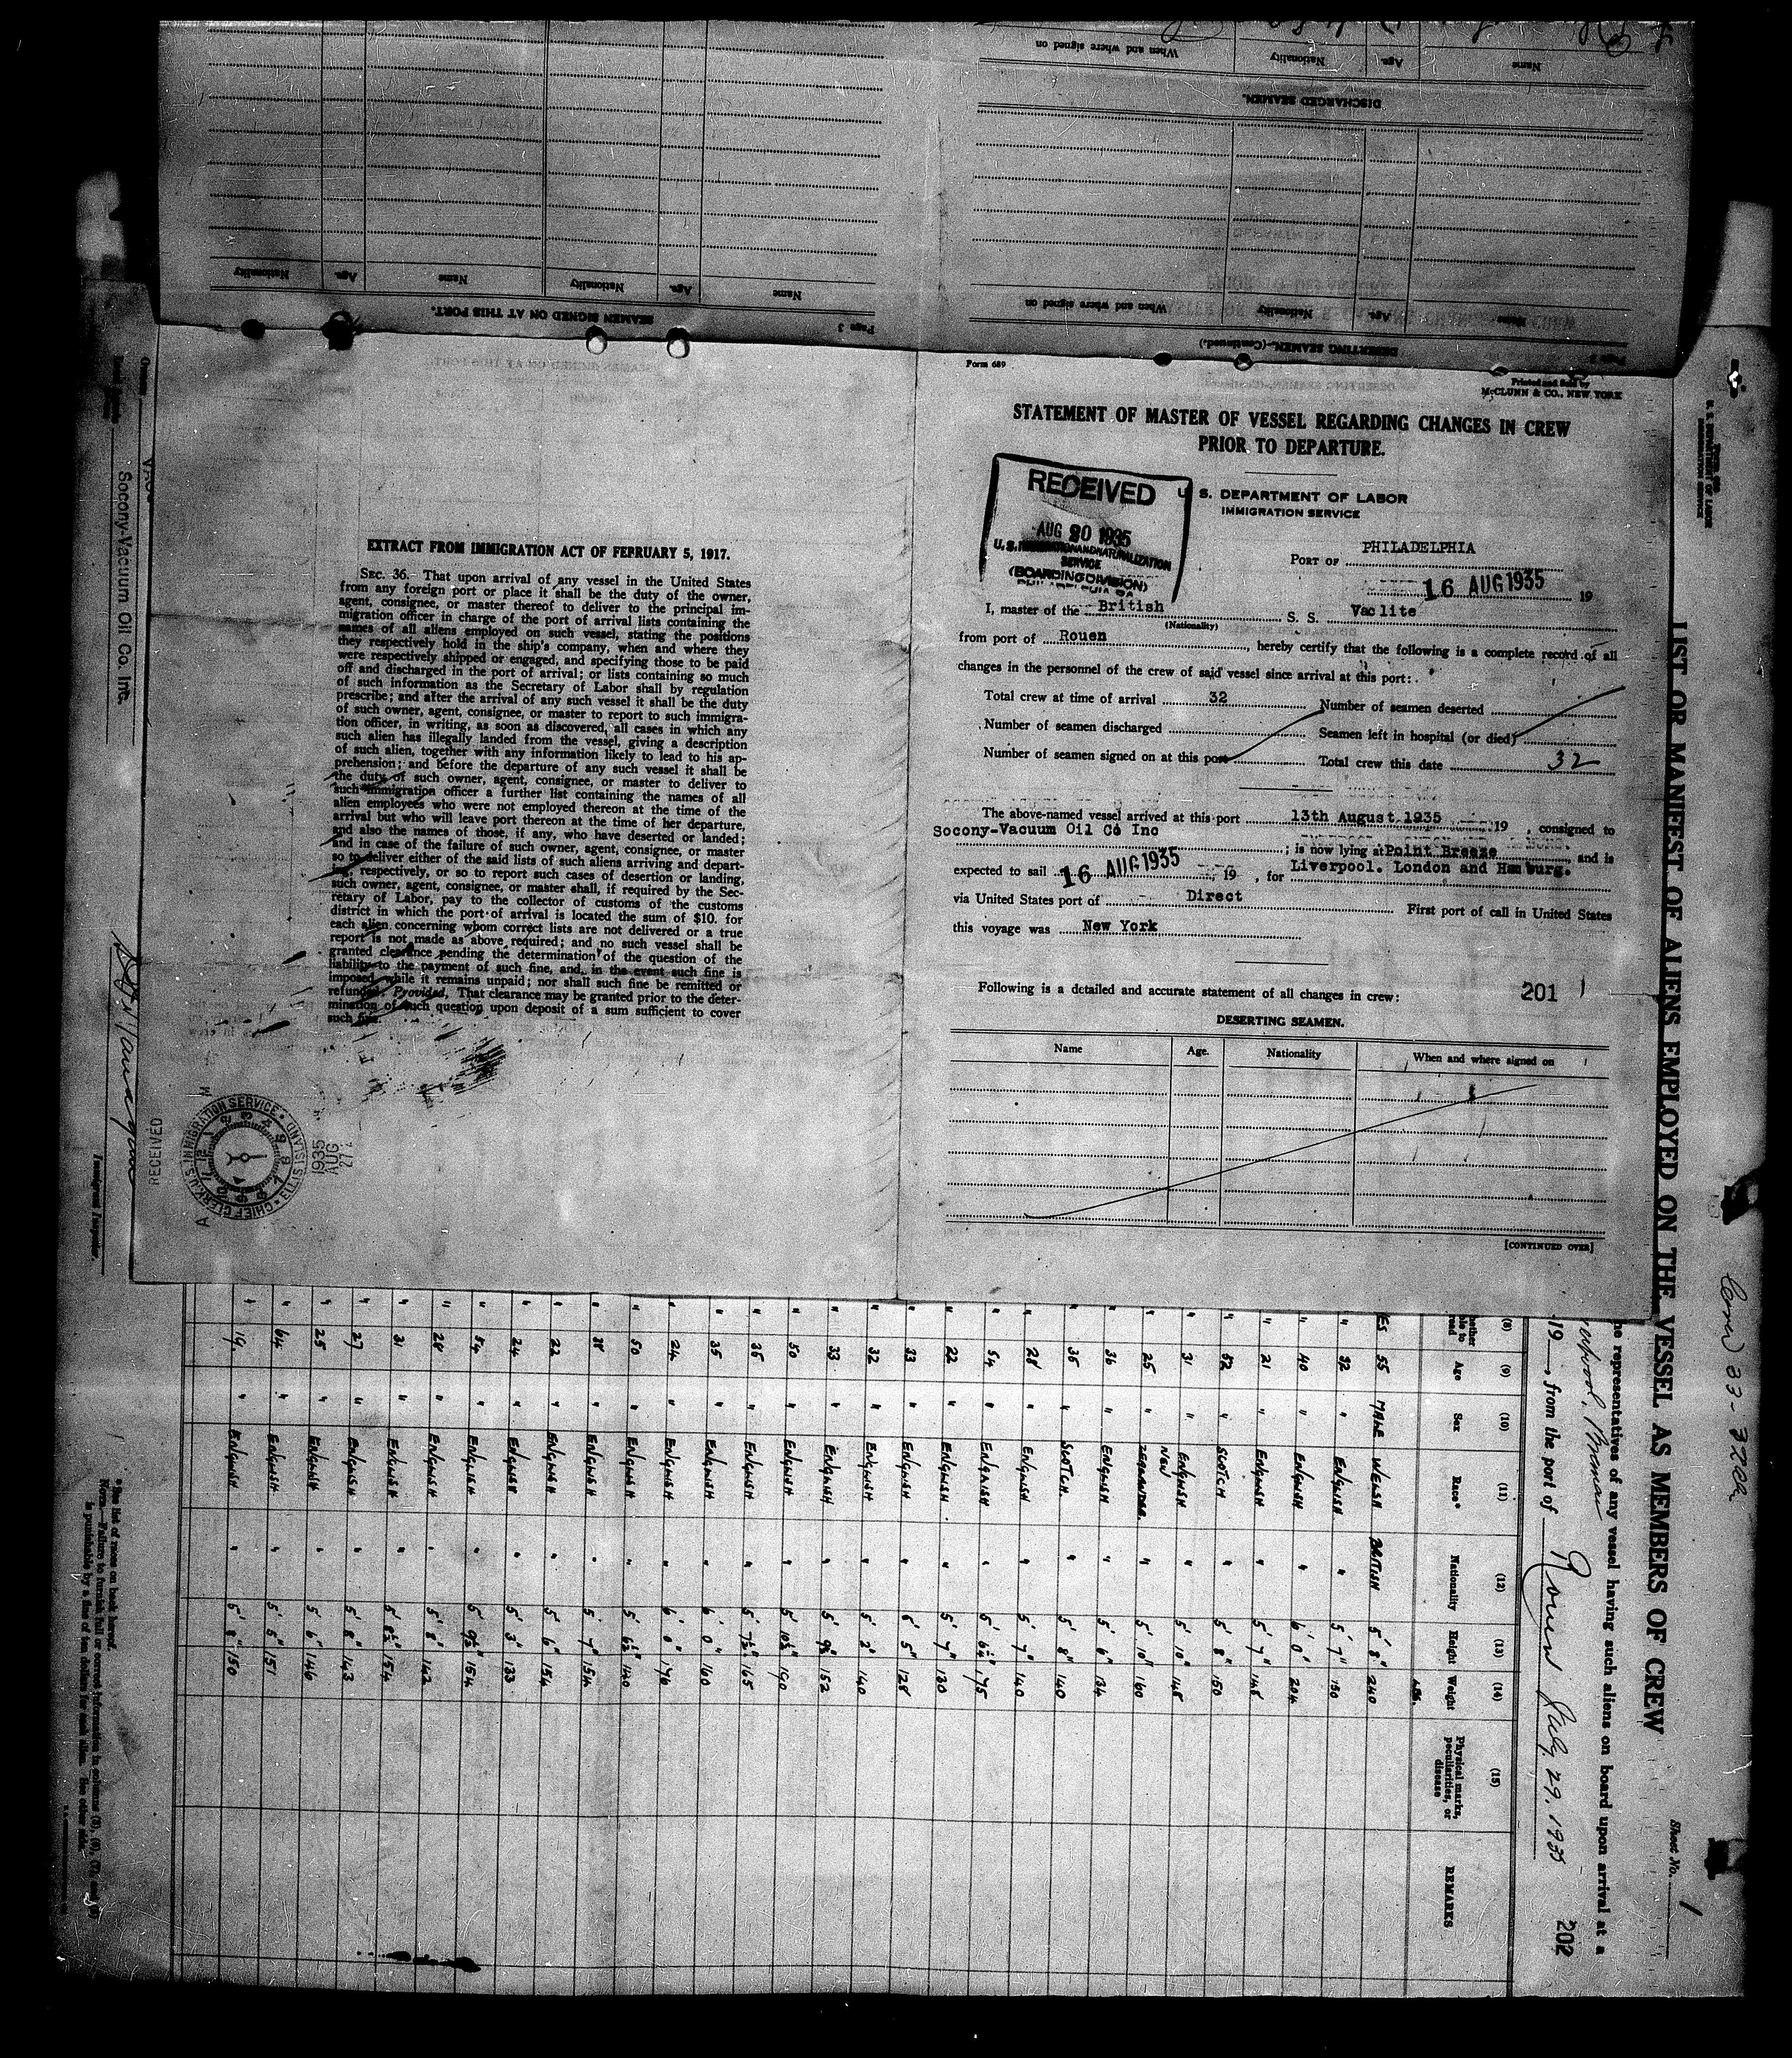 When and where signed on
Nationality
Age.
Name
DISCHARGED SEAMEN.
Nationality
Age.
Name
Nationality
Age.
Name
When and where signed on
Nationality
Name
SEAMEN SIGNED ON AT THIS PORT.
Page 3
DESERTING SEAMEN.—(Continued.)
EXTRACT FROM IMMIGRATION ACT OF FEBRUARY 5, 1917.
SEC. 36. That upon arrival of any vessel in the United States
from any foreign port or place it shall be the duty of the owner,
agent, consignee, or master thereof to deliver to the principal im-
migration officer in charge of the port of arrival lists containing the
names of all aliens employed on such vessel, stating the positions
they respectively hold in the ship's company, when and where they
were respectively shipped or engaged, and specifying those to be paid
off and discharged in the port of arrival; or lists containing so much
of such information as the Secretary of Labor shall by regulation
prescribe; and after the arrival of any such vessel it shall be the duty
of such owner, agent, consignee, or master to report to such immigra-
tion officer, in writing, as soon as discovered, all cases in which any
such alien has illegally landed from the vessel, giving a description
of such alien, together with any information likely to lead to his ap-
prehension; and before the departure of any such vessel it shall be
the duty of such owner, agent, consignee, or master to deliver to
such immigration officer a further list containing the names of all
alien employees who were not employed thereon at the time of the
arrival but who will leave port thereon at the time of her departure,
and also the names of those, if any, who have deserted or landed;
and in case of the failure of such owner, agent, consignee, or master
so to deliver either of the said lists of such aliens arriving and depart-
ing, respectively, or so to report such cases of desertion or landing,
such owner, agent, consignee, or master shall, if required by the Sec-
retary of Labor, pay to the collector of customs of the customs
district in which the port of arrival is located the sum of $10. for
each alien concerning whom correct lists are not delivered or a true
report is not made as above required; and no such vessel shall be
granted clearance pending the determination of the question of the
liability to the payment of such fine, and, in the event such fine is
imposed, while it remains unpaid; nor shall such fine be remitted or
refunded. Provided, That clearance may be granted prior to the deter-
mination of such question upon deposit of a sum sufficient to cover
such fine.
RECEIVED
CHIEF CLERK, U.S. IMMIGRATION SERVICE • ELLIS ISLAND
1935
AUG
27
Form 689
Printed and Sold by
McCLUNN & CO., NEW YORK
STATEMENT OF MASTER OF VESSEL REGARDING CHANGES IN CREW
PRIOR TO DEPARTURE.
RECEIVED
AUG 20 1935
U.S. IMMIGRATION AND NATURALIZATION
SERVICE
(BOARDING DIVISION)
U. S. DEPARTMENT OF LABOR
IMMIGRATION SERVICE
PORT OF PHILADELPHIA
16 AUG 1935 19
I, master of the British S. S. Vaclite
(Nationality)
from port of Rouen, hereby certify that the following is a complete record of all
changes in the personnel of the crew of said vessel since arrival at this port:
Total crew at time of arrival 32 Number of seamen deserted
Number of seamen discharged Seamen left in hospital (or died)
Number of seamen signed on at this port Total crew this date 32
The above-named vessel arrived at this port 13th August.1935 19 , consigned to
Socony-Vacuum Oil Co Inc
; is now lying at Point Breeze and is
expected to sail 16 AUG 1935 19 , for Liverpool. London and Hamburg.
via United States port of Direct First port of call in United States
this voyage was New York
Following is a detailed and accurate statement of all changes in crew: 201
DESERTING SEAMEN.
Name Age. Nationality When and where signed on
[CONTINUED OVER]
LIST OR MANIFEST OF ALIENS EMPLOYED ON THE VESSEL AS MEMBERS OF CREW
Sheet No. 1
he representatives of any vessel having such aliens on board upon arrival at a
19 , from the port of Rouen July 29, 1935
202
(8) (9) (10) (11) (12) (13) (14) (15)
Age Sex Race* Nationality Height Weight Physical marks, peculiarities, or disease REMARKS
LBS.
YES 55 MALE WELSH BRITISH 5' 8" 240
" 32 " ENGLISH " 5' 7" 150
" 40 " ENGLISH " 6' 0" 204
" 21 " ENGLISH " 5' 7" 148
" 52 " SCOTCH " 5' 8" 150
" 31 " ENGLISH " 5' 10" 148
" 25 " NEW ZEALANDER. " 5' 10" 160
" 36 " ENGLISH " 5' 6" 134
" 35 " SCOTCH. " 5' 8" 140
" 28 " ENGLISH " 5' 7" 140
" 54 " ENGLISH " 5' 6½" 175
" 22 " ENGLISH " 5' 7" 130
" 33 " ENGLISH " 5' 5" 128
" 32 " ENGLISH " 5' 2" 140
" 33 " ENGLISH " 5' 9½" 152
" 50 " ENGLISH " 5' 10½" 190
" 36 " ENGLISH " 5' 7½" 165
" 35 " ENGLISH " 6' 0" 160
" 24 " ENGLISH " 6' 0" 176
" 50 " ENGLISH " 5' 6½" 140
" 38 " ENGLISH " 5' 7" 154
" 22 " ENGLISH " 5' 6" 154
" 24 " ENGLISH " 5' 3" 133
" 54 " ENGLISH " 5' 9½" 154
" 28 " ENGLISH " 5' 8" 142
" 31 " ENGLISH " 5' 8½" 154
" 27 " ENGLISH " 5' 8" 143
" 25 " ENGLISH " 5' 6" 146
" 64 " ENGLISH " 5' 5" 151
" 19. " ENGLISH " 5' 8" 150
*See list of races on back hereof.
NOTE.—Failure to furnish full or correct information in columns (3), (6), (7) and (8)
is punishable by a fine of ten dollars for each alien. See other side.
Socony-Vacuum Oil Co. Inc.
Immigrant Inspector.